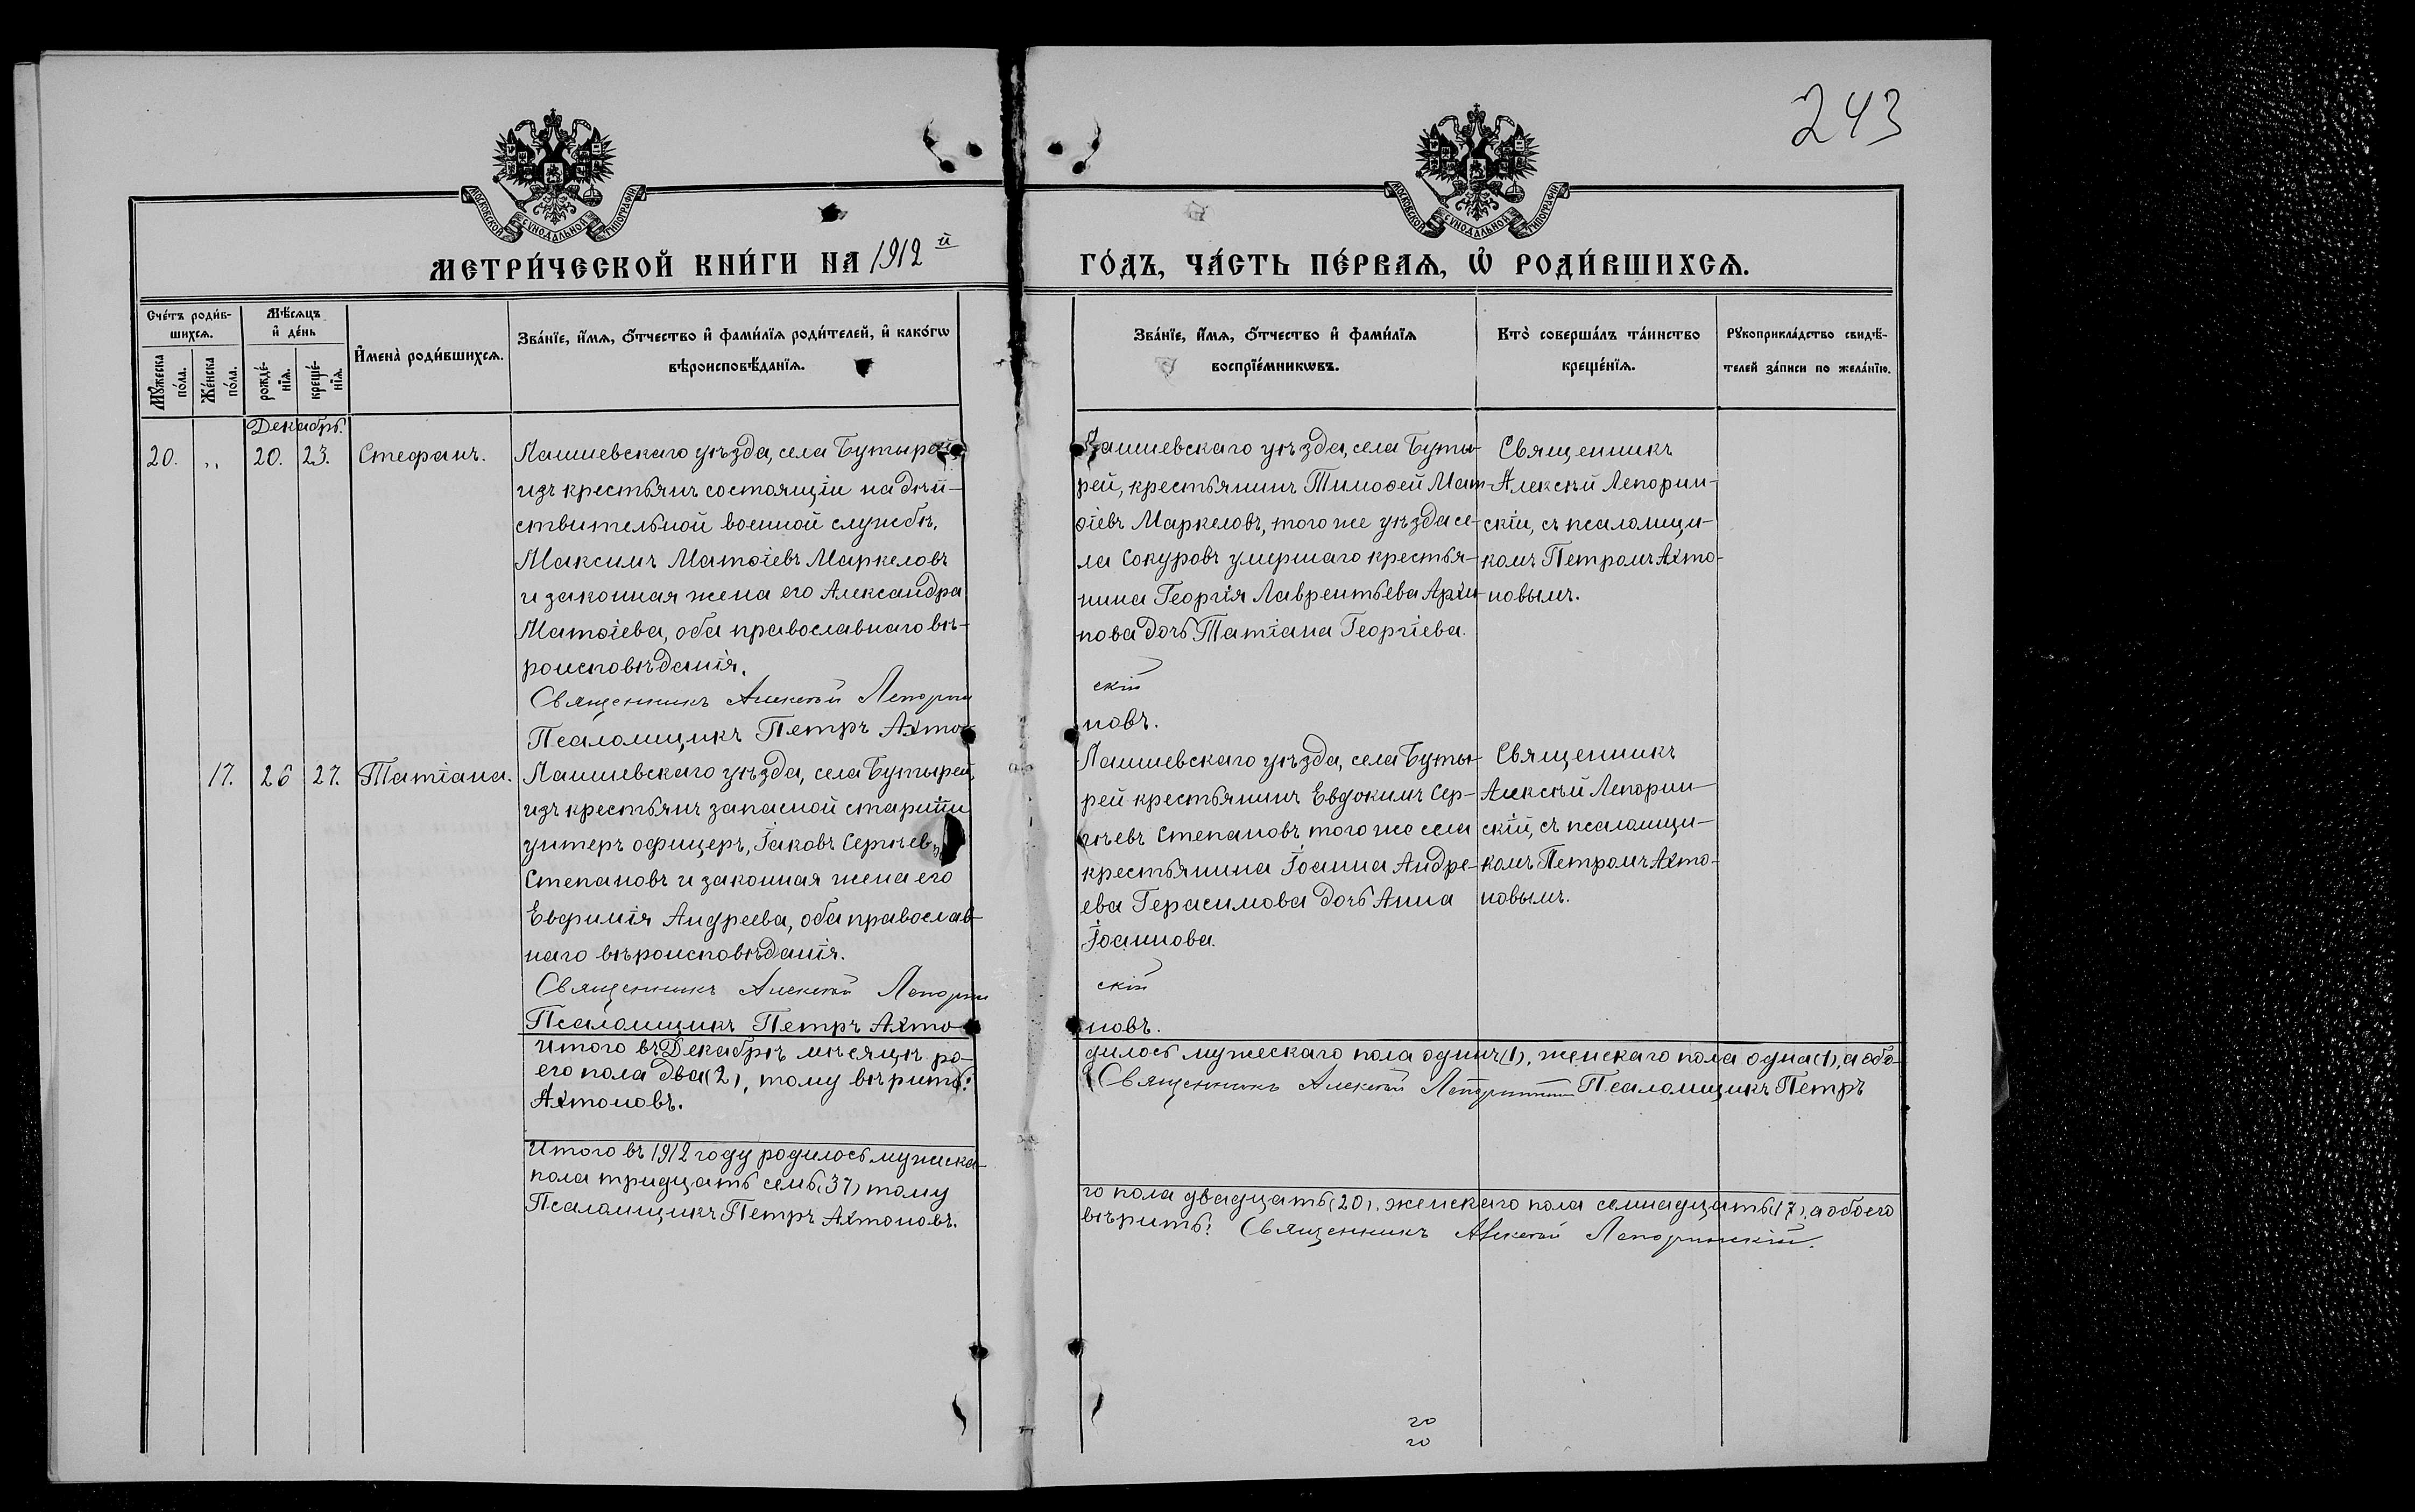 243
МОСКОВСКОЙ СѴНОДАЛЬНОЙ ТИПОГРАФІИ
МОСКОВСКОЙ СѴНОДАЛЬНОЙ ТИПОГРАФІИ
МЕТРИ́ЧЕСКОЙ КНИ́ГИ НА 1912 й
ГО́ДЪ, ЧА́СТЬ ПЕ́РВАѦ, Ѡ҆ РОДИ́ВШИХСѦ.
Сче́тъ роди́в-
шихсѧ.
Мꙋ́жеска
по́ла.
Же́нска
по́ла.
Мѣ́сѧцъ
и҆ де́нь
рожде́-
нїѧ.
креще́-
нїѧ.
И҆мена̀ роди́вшихсѧ.
Зва́нїе, и҆́мѧ, ѻ҆́тчество и҆ фами́лїѧ роди́телей, и҆ како́гѡ
вѣроисповѣ́данїѧ.
Зва́нїе, и҆́мѧ, ѻ҆́тчество и҆ фами́лїѧ
воспрїе́мникѡвъ.
Кто̀ соверша́лъ та́инство
креще́нїѧ.
Рꙋкоприкла́дство свидѣ́-
телей за́писи по жела́нїю.
Декабрь.
20. „ 20. 23. Стефанъ.
Лаишевскаго уѣзда, села Бутырей
изъ крестьянъ состоящій на дѣй-
ствительной военной службѣ,
Максимъ Матѳіевъ Маркеловъ
и законная жена его Александра
Матѳіева, оба православнаго вѣ-
роисповѣданія.
Священникъ Алексѣй Лепорин
Псаломщикъ Петръ Ахто-
Лаишевскаго уѣзда, села Буты-
рей, крестьянинъ Тимоѳей Мат-
ѳіевъ Маркеловъ, того же уѣзда се-
ла Сокуровъ умершаго крестья-
нина Георгія Лаврентьева Архи-
пова дочь Татіана Георгіева.
скій
новъ.
Священникъ
Алексѣй Лепорин-
скій, съ псаломщи-
комъ Петромъ Ахто-
новымъ.
17. 26 27. Татіана.
Лаишевскаго уѣзда, села Бутырей,
изъ крестьянъ запасной старшій
унтеръ офицеръ, Іаковъ Сергѣевъ
Степановъ и законная жена его
Евфимія Андреева, оба православ-
наго вѣроисповѣданія.
Священникъ Алексѣй Лепорин
Псаломщикъ Петръ Ахто-
Лаишевскаго уѣзда, села Буты-
рей крестьянинъ Евдокимъ Сер-
гѣевъ Степановъ, того же села
крестьянина Іоанна Андре-
ева Герасимова дочь Анна
Іоаннова.
скій
новъ.
Священникъ
Алексѣй Лепорин-
скій, съ псаломщи-
комъ Петромъ Ахто-
новымъ.
Итого въ Декабрѣ мѣсяцѣ ро-
дилось мужескаго пола одинъ (1), женскаго пола одна (1), а обо-
его пола два (2), тому вѣрить:
Священникъ Алексѣй Лепоринскій Псаломщикъ Петръ
Ахтоновъ.
Итого въ 1912 году родилось мужска-
го пола двадцать (20), женскаго пола семнадцать (17), а обоего
пола тридцать семь (37) тому
вѣрить: Священникъ Алексѣй Лепоринскій.
Псаломщикъ Петръ Ахтоновъ.
20
20